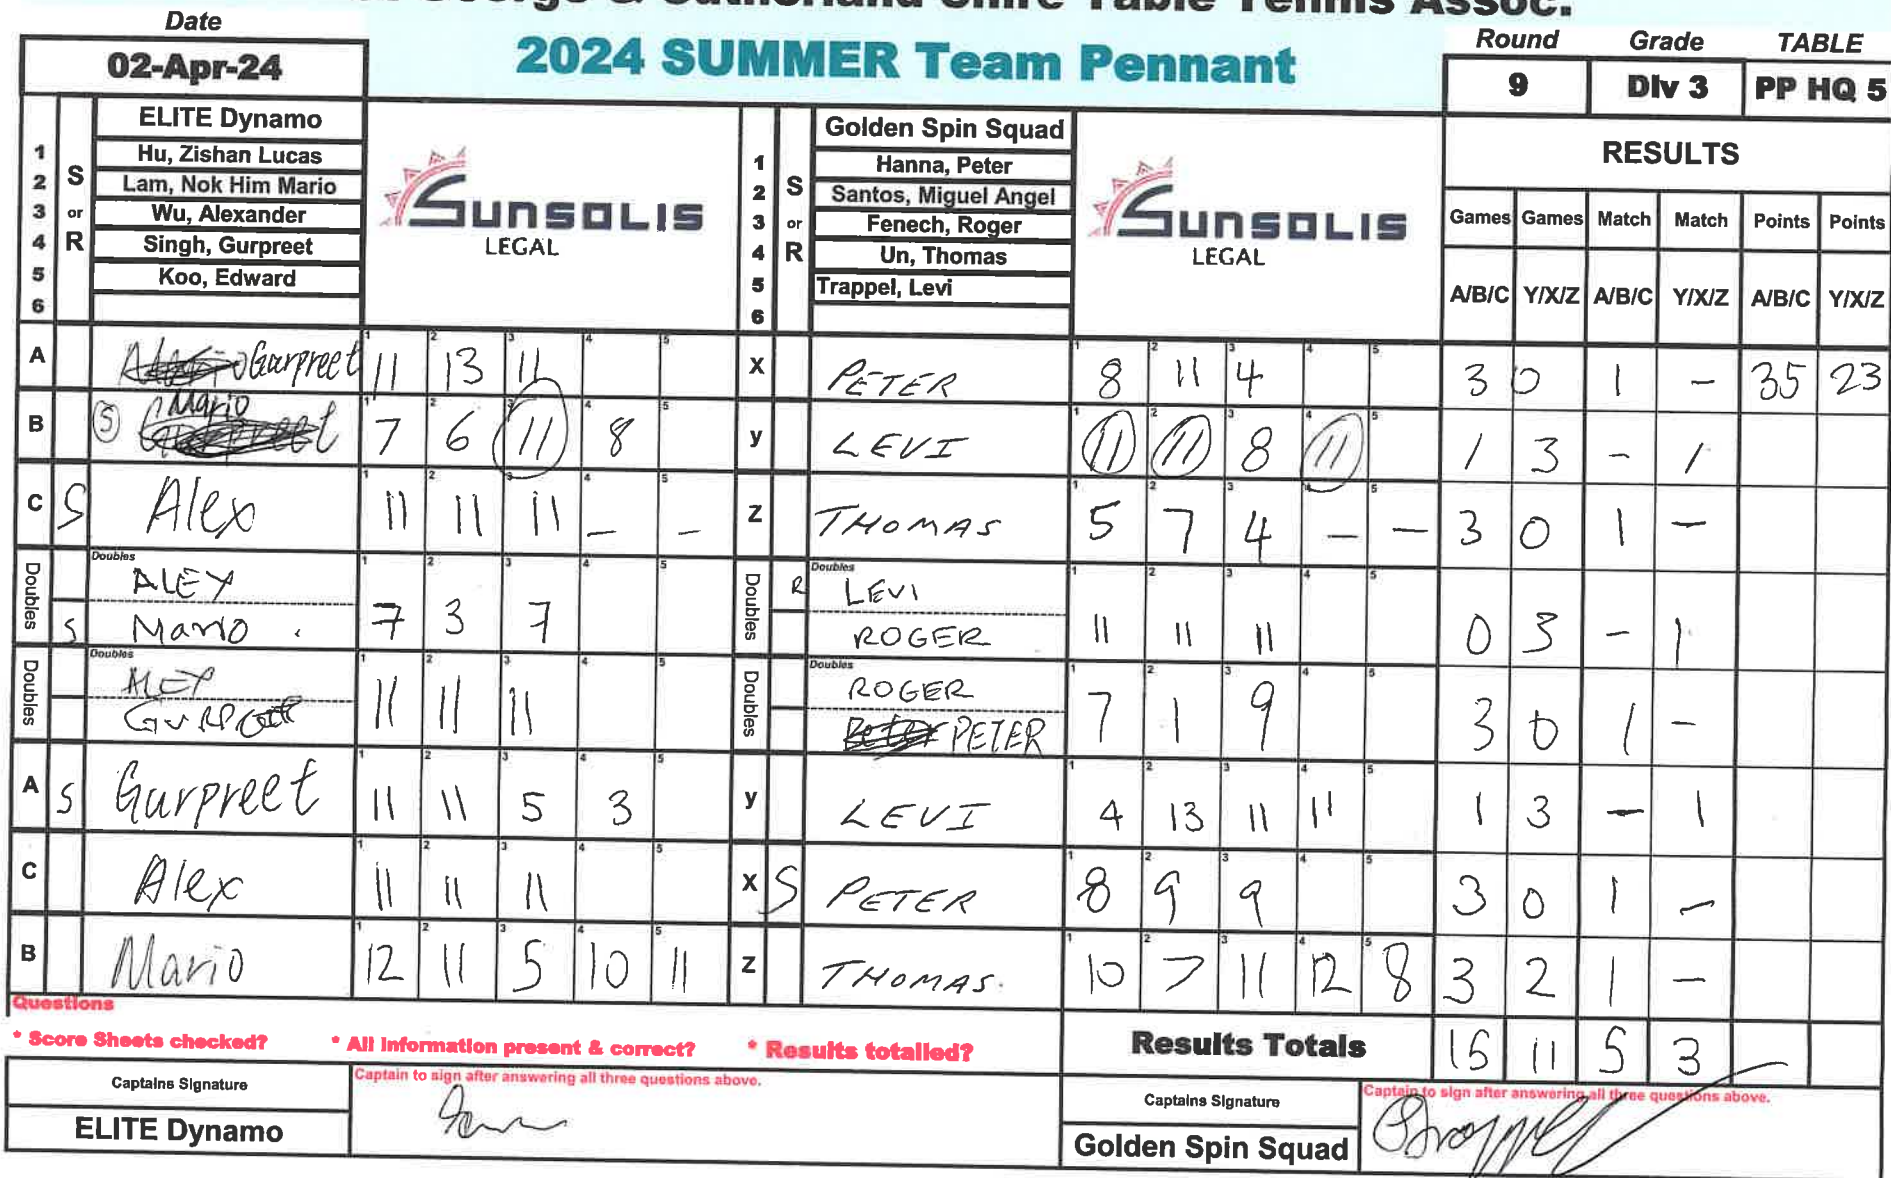 Date
02-Apr-24
2024 SUMMER Team Pennant
Round Grade TABLE
9 Div 3 PP HQ 5
1 2 3 4 5 6
S or R
ELITE Dynamo
Hu, Zishan Lucas
Lam, Nok Him Mario
Wu, Alexander
Singh, Gurpreet
Koo, Edward
SUNSOLIS
LEGAL
1 2 3 4 5 6
S or R
Golden Spin Squad
Hanna, Peter
Santos, Miguel Angel
Fenech, Roger
Un, Thomas
Trappel, Levi
SUNSOLIS
LEGAL
RESULTS
Games Games Match Match Points Points
A/B/C Y/X/Z A/B/C Y/X/Z A/B/C Y/X/Z
A Gurpreet 11 13 11 X PETER 8 11 4 3 0 1 - 35 23
B S Mario 7 6 11 8 y LEVI 11 11 8 11 1 3 - 1
C S Alex 11 11 11 - - Z THOMAS 5 7 4 - - 3 0 1 -
Doubles Doubles ALEX Doubles R Doubles LEVI
S Mario . 7 3 7 ROGER 11 11 11 0 3 - 1
Doubles Doubles ALEX Doubles Doubles ROGER
11 11 11 PETER 7 1 9 3 0 1 -
A S Gurpreet 11 11 5 3 y LEVI 4 13 11 11 1 3 - 1
C Alex 11 11 11 X S PETER 8 9 9 3 0 1 -
B Mario 12 11 5 10 11 Z THOMAS. 10 7 11 12 8 3 2 1 -
Questions
* Score Sheets checked? * All information present & correct? * Results totalled?
Results Totals 11 5 3
Captains Signature
Captain to sign after answering all three questions above.
ELITE Dynamo
Captains Signature
Captain to sign after answering all three questions above.
Golden Spin Squad